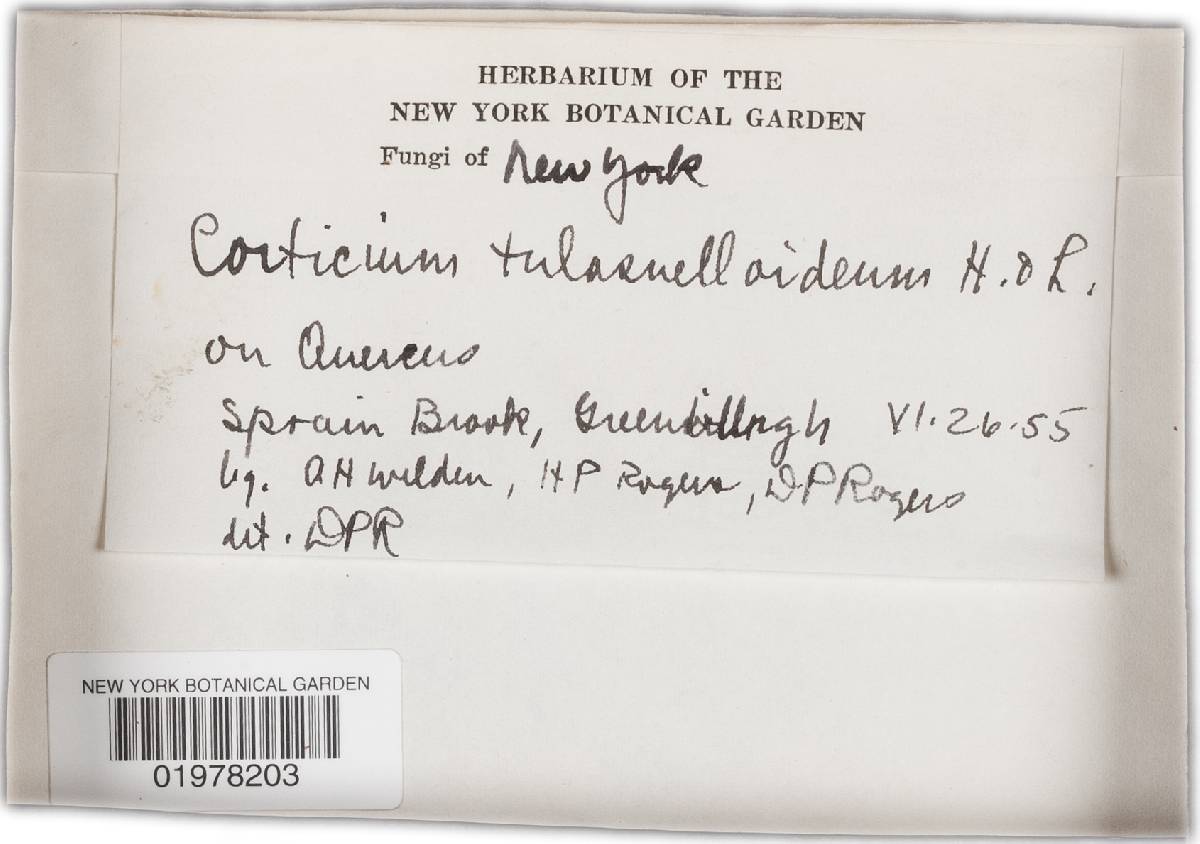 HERBARIUM OF THE
NEW YORK BOTANICAL GARDEN
Fungi of New York
Corticium tulasnelloideum H. & L.
on Quercus
Sprain Brook, VI.26.55
lg. AH Welden, HP Rogers, DP Rogers
det. DPR
NEW YORK BOTANICAL GARDEN
01978203